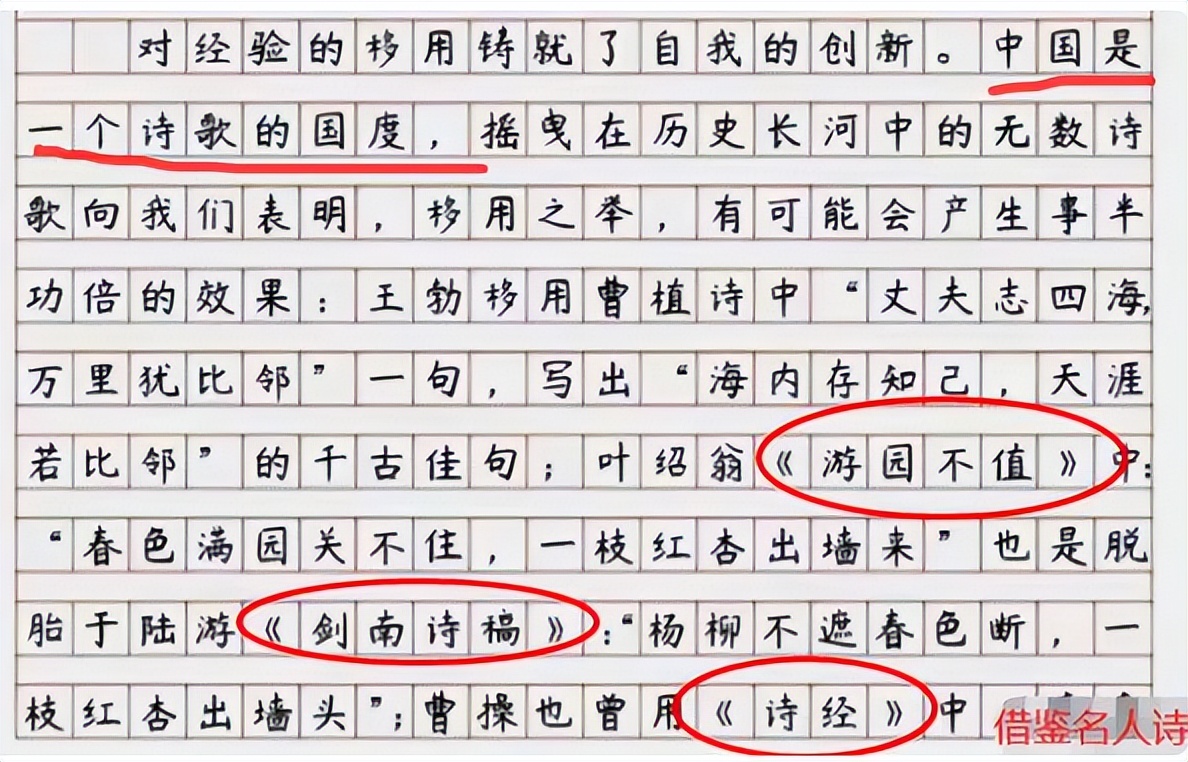 对经验的移用铸就了自我的创新。中国是
一个诗歌的国度，摇曳在历史长河中的无数诗
歌向我们表明，移用之举，有可能会产生事半
功倍的效果：王勃移用曹植诗中“丈夫志四海,
万里犹比邻”一句，写出“海内存知己，天涯
若比邻”的千古佳句；叶绍翁《游园不值》中：
“春色满园关不住，一枝红杏出墙来”也是脱
胎于陆游《剑南诗稿》：“杨柳不遮春色断，一
枝红杏出墙头”；曹操也曾用《诗经》中
借鉴名人诗